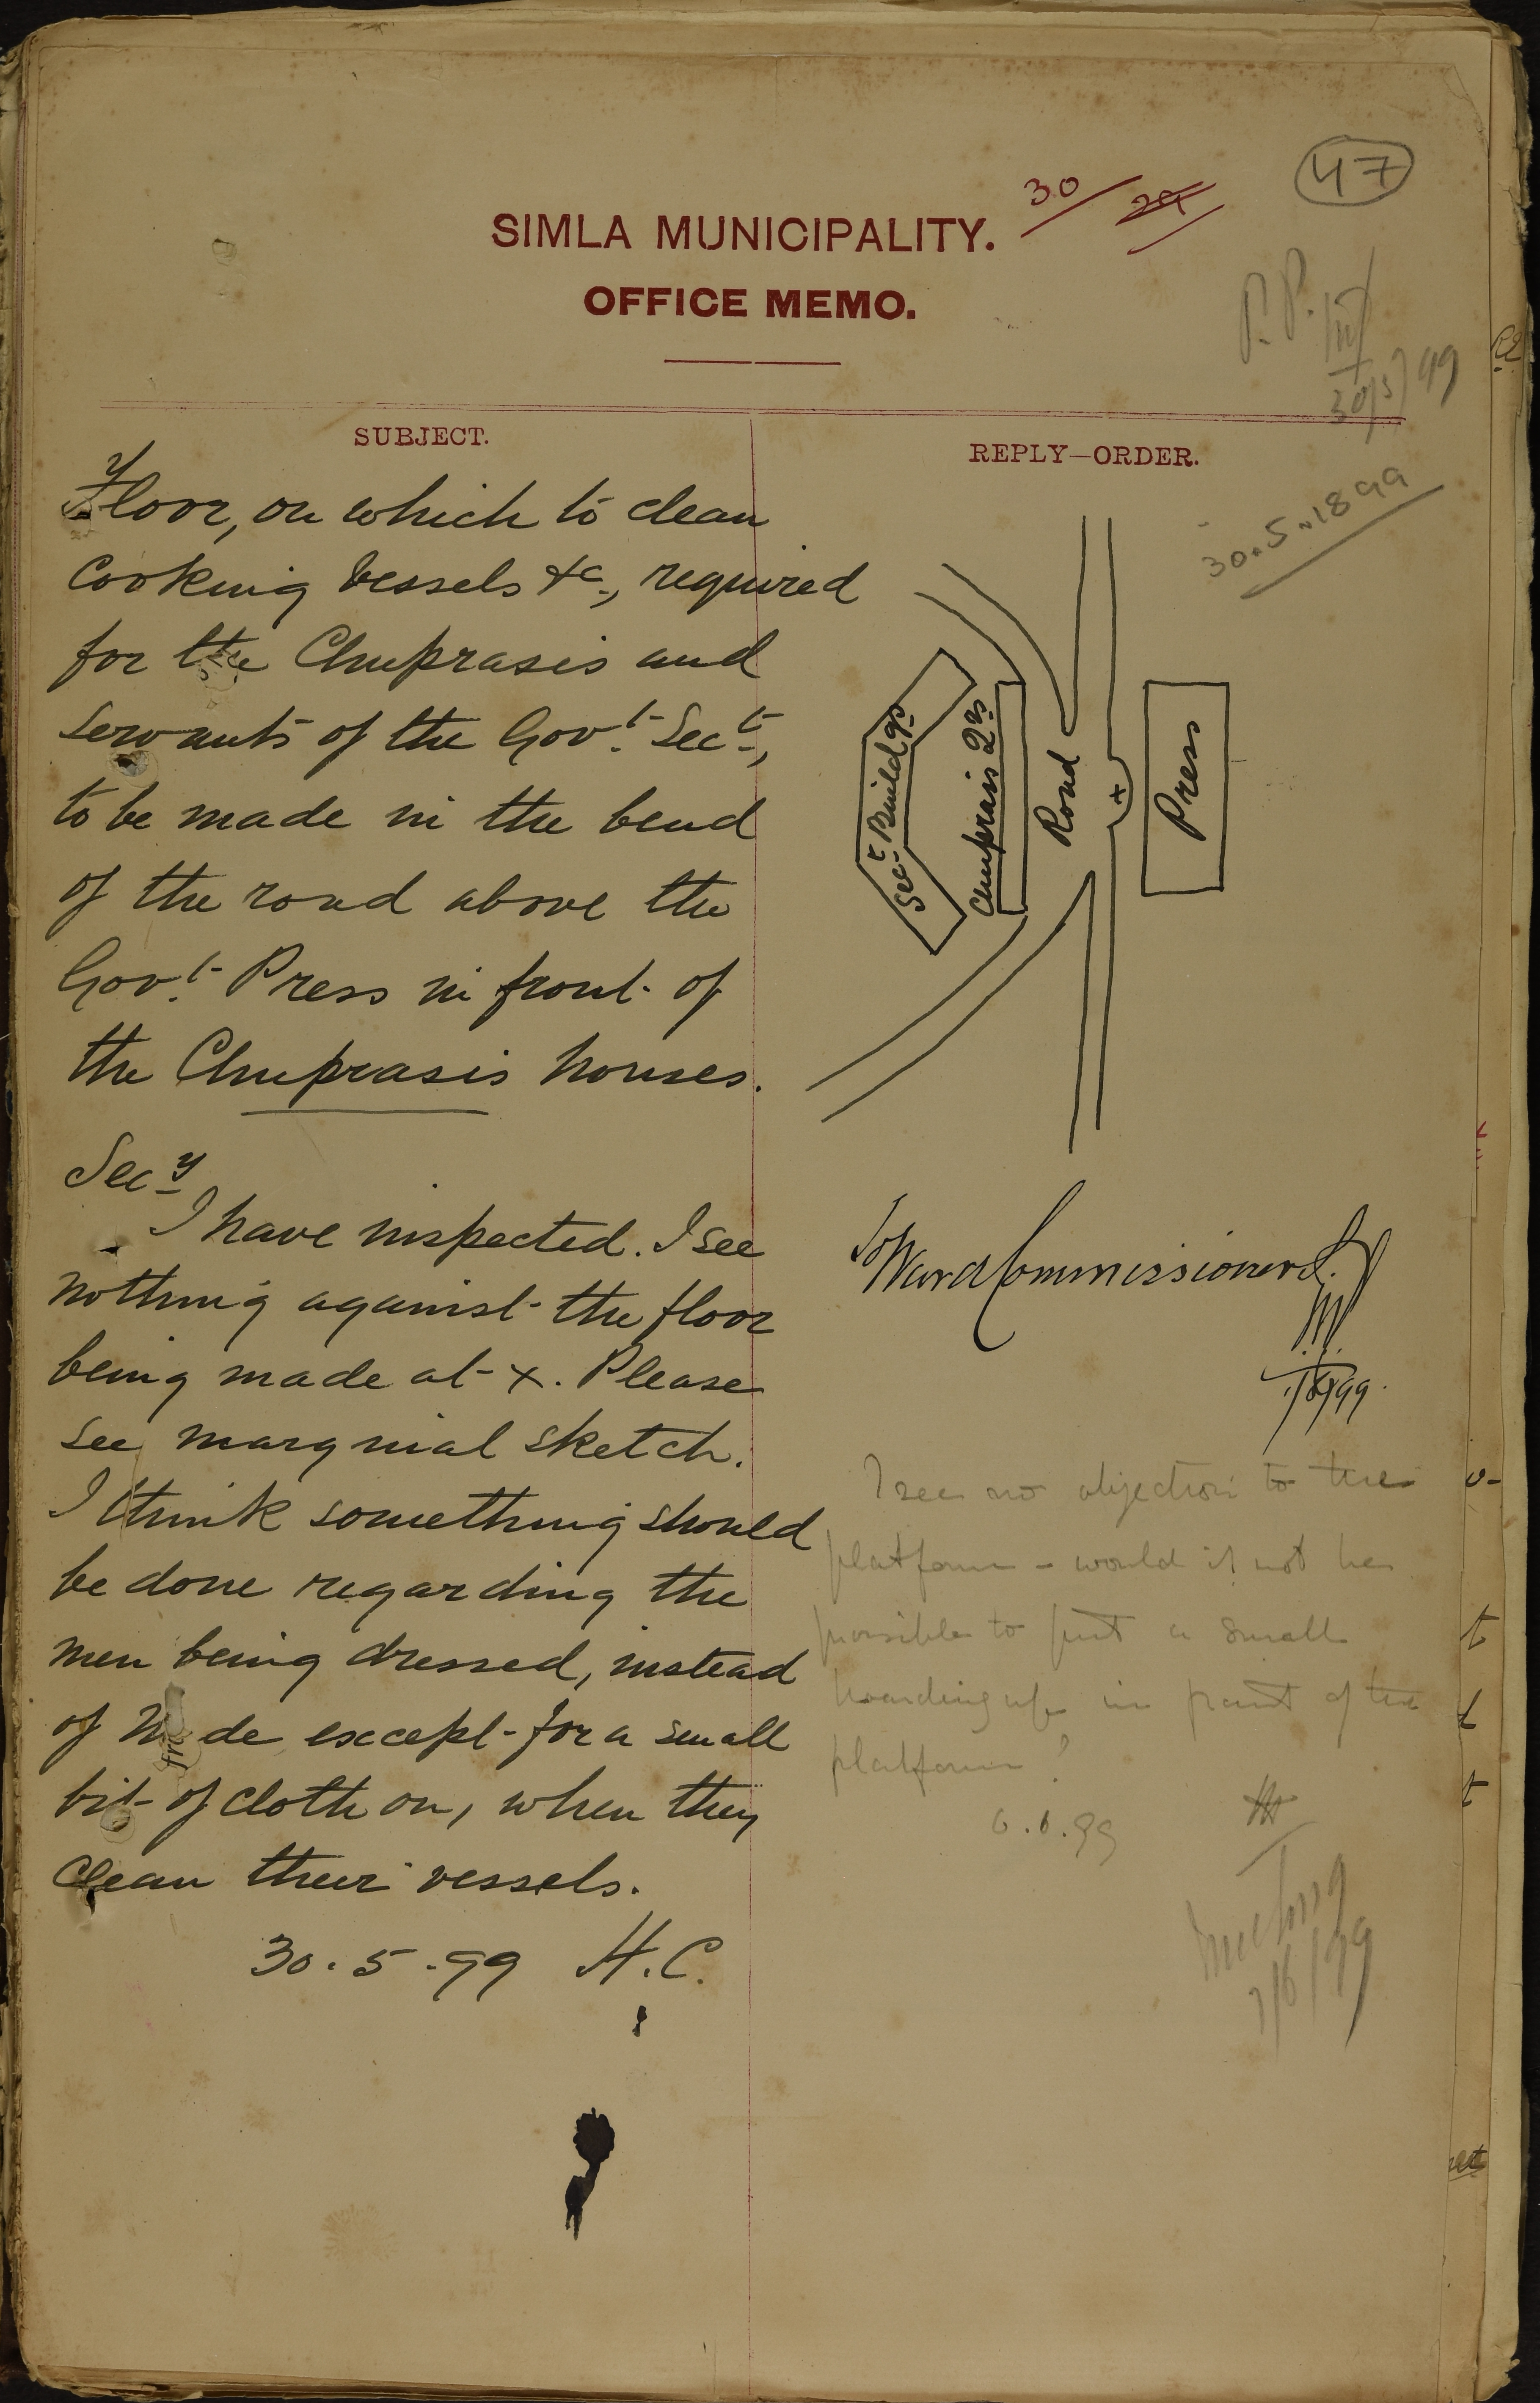 47
30/
SIMLA MUNICIPALITY.
OFFICE MEMO.
P. P.
30/5/99
SUBJECT.
REPLY—ORDER.
30.5.1899
Floor, on which to clean
cooking vessels &c., required
for the Chuprasis and
servants of the Govt. Sect.,
to be made in the bend
of the road above the
Govt. Press in front of
the Chuprasis houses.
Secy
I have inspected. I see
nothing against the floor
being made at x. Please
see marginal sketch.
I think something should
be done regarding the
men being dressed, instead
of N de except for a small
bit of cloth on, when they
clean their vessels.
30.5.99 H.C.
Sect Buildgs
Chuprasis Qrs
Road
x
Press
To Ward Commissioner
I see no objection to the
platform - would it not be
possible to put a small
hoarding up in front of the
platform?
6.6.99
Meeting
7/6/99